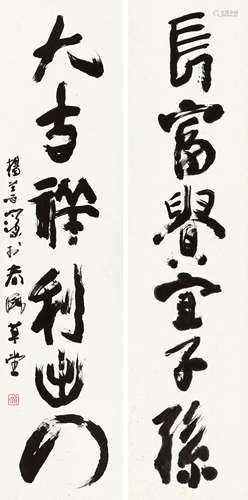 長富貴宜子孫
大吉祥利出
楊善深寫於春風草堂